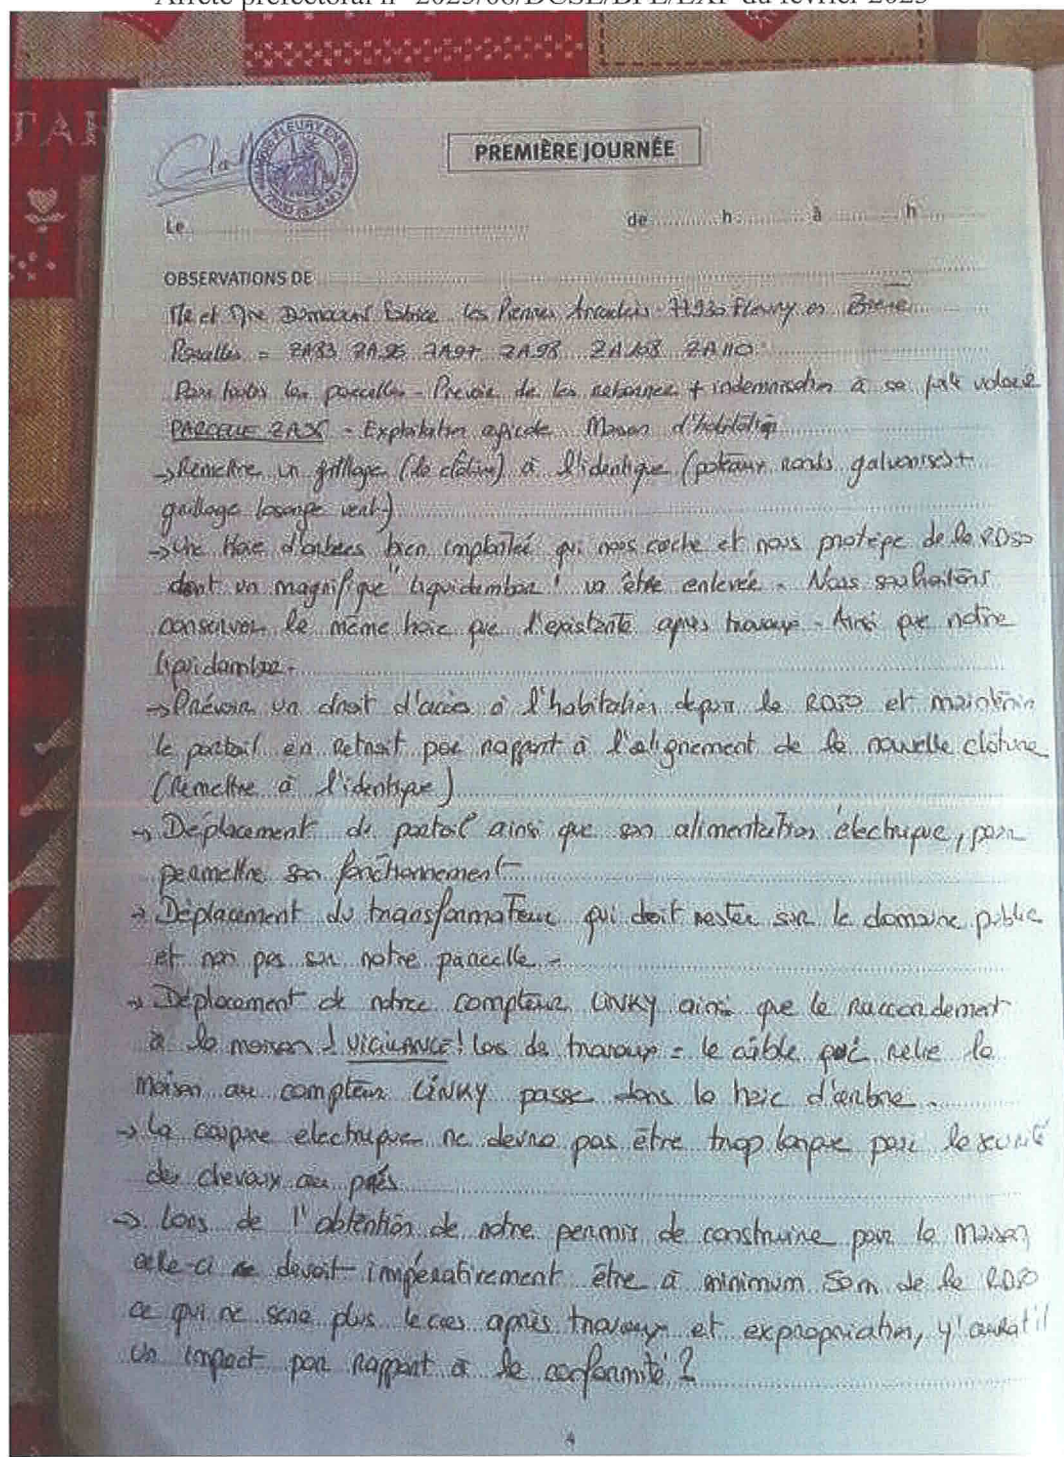 Arrêté préfectoral n° 2023/06/DCSE/BPE/EXP du février 2023
TAR
FLEURY EN BIERE
PREMIÈRE JOURNÉE
Le
de h à h
OBSERVATIONS DE
Mr et Mme Les Pierres 77930 Fleury en Bière
Parcelles = 2A95 2A97 2A98 2A110
Pour toutes les parcelles - Prévoir de les + indemnisation à sa juste valeur
PARCELLE - Exploitation apicole Maison d'habitation
→ Remettre un grillage (de clôture) à l'identique (poteaux ronds galvanisés +
grillage losange vert)
→ Une Haie d'arbres bien implantée qui nous cache et nous protège de la RD50
dont un magnifique "liquidambar" va être enlevée - Nous souhaitons
conserver la même haie que l'existante après travaux - Ainsi que notre
liquidambar -
→ Prévoir un droit d'accès à l'habitation depuis la RD50 et maintenir
le portail en retrait par rapport à l'alignement de la nouvelle clôture
(Remettre à l'identique)
→ Déplacement du portail ainsi que son alimentation électrique, pour
permettre son fonctionnement -
→ Déplacement du transformateur qui doit rester sur le domaine public
et non pas sur notre parcelle -
→ Déplacement de notre compteur LINKY ainsi que le Raccordement
à la maison ! VIGILANCE ! Lors de travaux = le câble qui relie la
maison au compteur LINKY passe dans la haie d'arbre.
→ La coupure electrique ne devra pas être trop longue pour la sécurité
des chevaux au prés
→ Lors de l'obtention de notre permis de construire pour la maison
celle-ci devait impérativement être à minimum 50m de la RD50
ce qui ne sera plus le cas après travaux et expropriation, y'aurat'il
un impact par rapport à la conformité ?
4